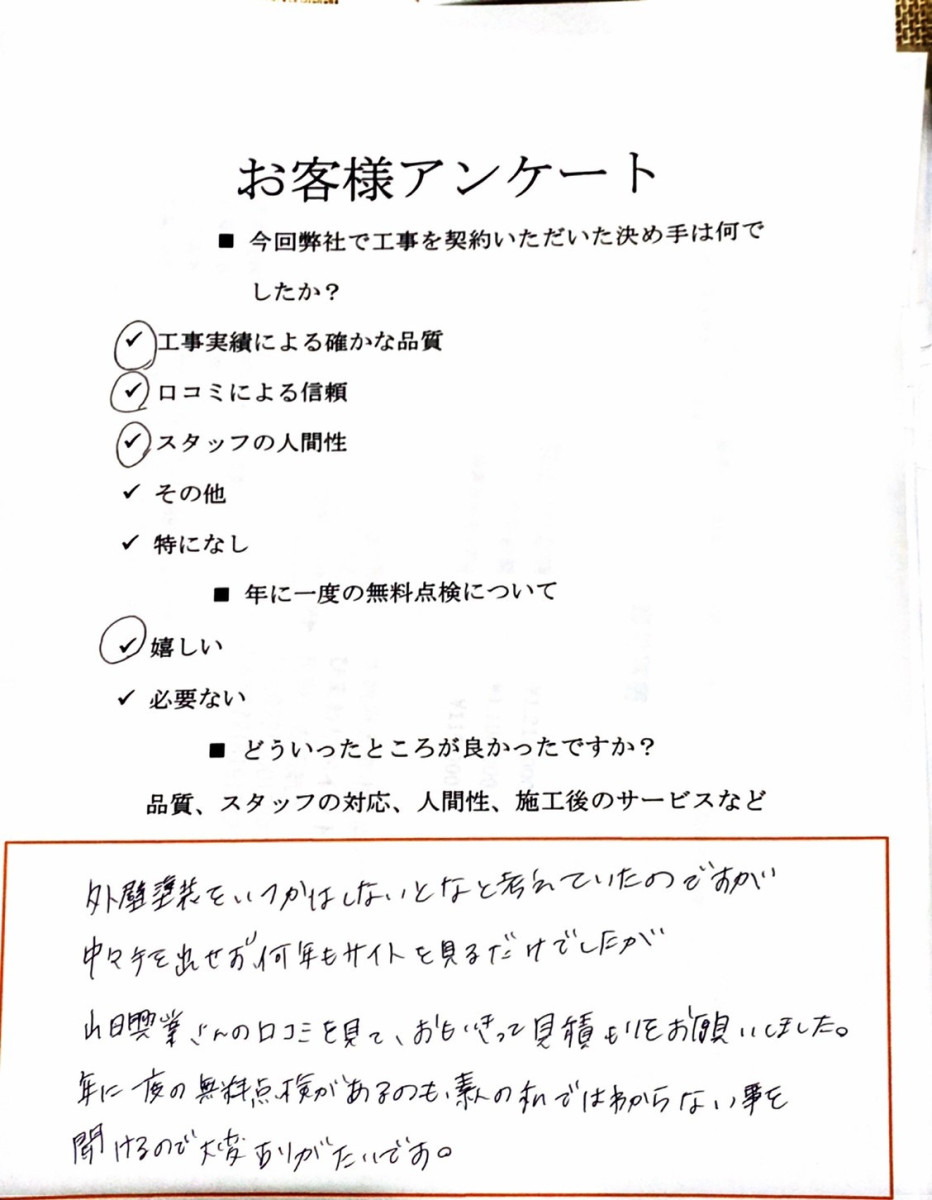 お客様アンケート
■ 今回弊社で工事を契約いただいた決め手は何で
したか？
✓ 工事実績による確かな品質
✓ 口コミによる信頼
✓ スタッフの人間性
✓ その他
✓ 特になし
■ 年に一度の無料点検について
✓ 嬉しい
✓ 必要ない
■ どういったところが良かったですか？
品質、スタッフの対応、人間性、施工後のサービスなど
外壁塗装をいつかはしないとなと考えていたのですが
中々手を出せず、何年もサイトを見るだけでしたが
山日興業さんの口コミを見て、おもいきって見積もりをお願いしました。
年に一度の無料点検があるのも、素人の私ではわからない事を
聞けるので大変ありがたいです。